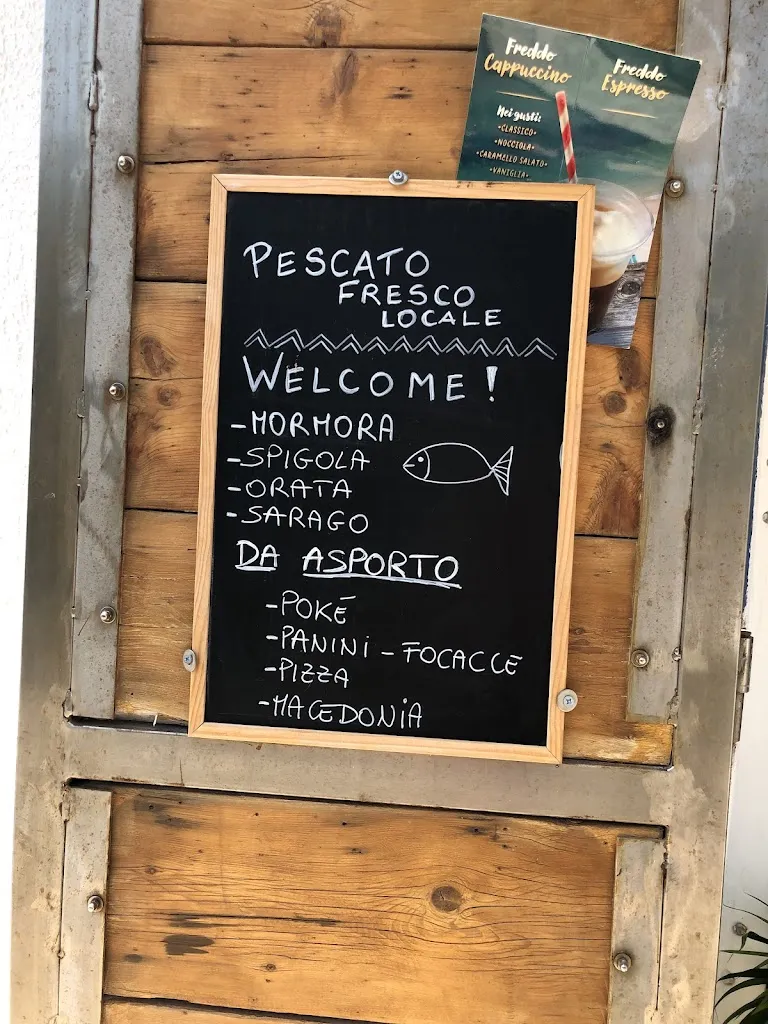 Freddo
Cappuccino
Freddo
Espresso
Nei gusti:
•CLASSICO•
•NOCCIOLA•
•CARAMELLO SALATO•
•VANIGLIA•
PESCATO
FRESCO
LOCALE
WELCOME!
-MORMORA
-SPIGOLA
-ORATA
-SARAGO
DA ASPORTO
-POKÉ
-PANINI - FOCACCE
-PIZZA
-MACEDONIA